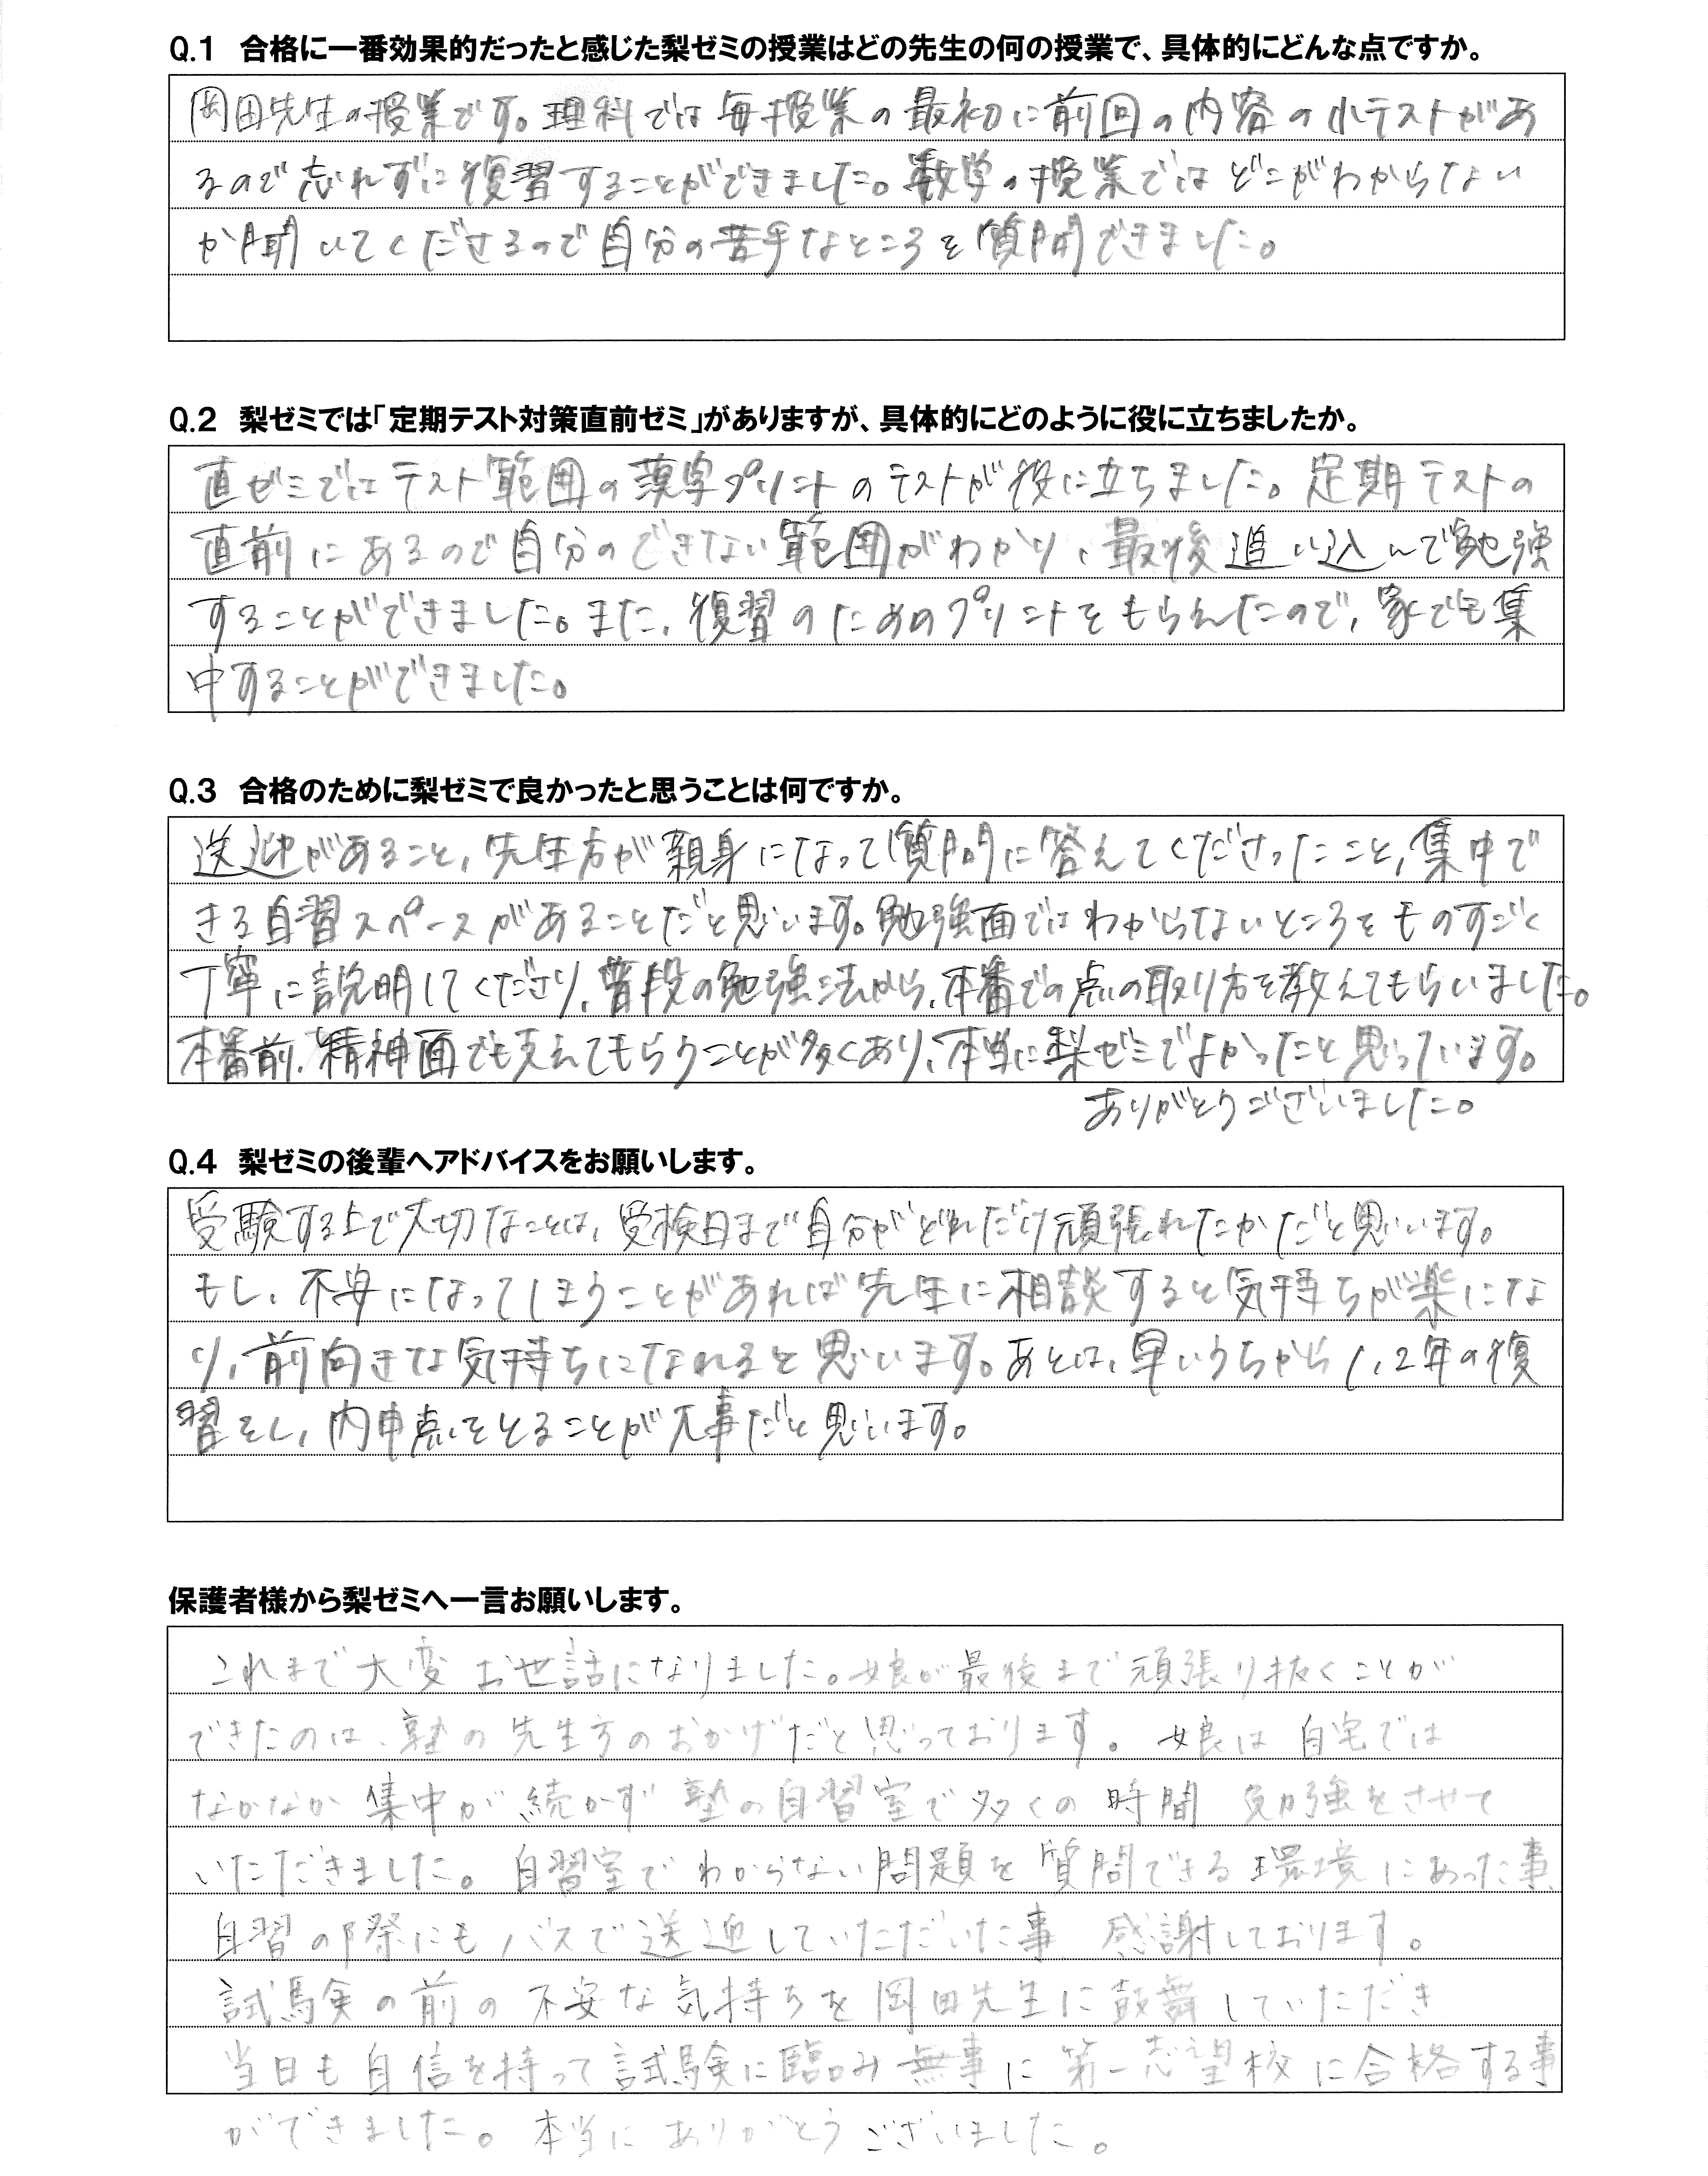 Q.1 合格に一番効果的だったと感じた梨ゼミの授業はどの先生の何の授業で、具体的にどんな点ですか。
岡田先生の授業です。理科では毎授業の最初に前回の内容の小テストがあ
るので忘れずに復習することができました。数学の授業ではどこがわからない
か聞いてくださるので自分の苦手なところを質問できました。
Q.2 梨ゼミでは「定期テスト対策直前ゼミ」がありますが、具体的にどのように役に立ちましたか。
直ゼミではテスト範囲の漢字プリントのテストが役に立ちました。定期テストの
直前にあるので自分のできない範囲がわかり、最後追い込んで勉強
することができました。また、復習のためのプリントをもらえたので、家でも集
中することができました。
Q.3 合格のために梨ゼミで良かったと思うことは何ですか。
送迎があること、先生方が親身になって質問に答えてくださったこと、集中で
きる自習スペースがあることだと思います。勉強面ではわからないところをものすごく
丁寧に説明してくださり、普段の勉強法から、本番での点の取り方を教えてもらいました。
本番前、精神面でも支えてもらうことが多くあり、本当に梨ゼミでよかったと思っています。
ありがとうございました。
Q.4 梨ゼミの後輩へアドバイスをお願いします。
受験する上で大切なことは、受検日まで自分がどれだけ頑張れたかだと思います。
もし、不安になってしまうことがあれば先生に相談すると気持ちが楽にな
り、前向きな気持ちになれると思います。あとは、早いうちから1、2年の復
習をし、内申点をとることが大事だと思います。
保護者様から梨ゼミへ一言お願いします。
これまで大変お世話になりました。娘が最後まで頑張り抜くことが
できたのは、塾の先生方のおかげだと思っております。娘は自宅では
なかなか集中が続かず塾の自習室で多くの時間勉強をさせて
いただきました。自習室でわからない問題を質問できる環境にあった事
自習の際にもバスで送迎していただいた事感謝しております。
試験の前の不安な気持ちを岡田先生に鼓舞していただき
当日も自信を持って試験に臨み無事に第一志望校に合格する事
ができました。本当にありがとうございました。